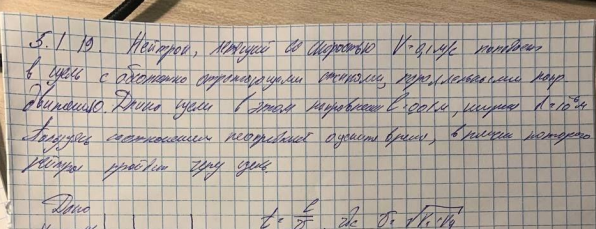 5.1.19. Нейтрон, летящий со скоростью V=0,1 м/с попадает
в щель с абсолютно отражающими стенками, параллельными напр.
движению. Длина щели в этом направлении l=0,01м, ширина d=10⁻⁶м
соотношением неопред. оцените время, в течении которого
нейтрон пройдёт через щель.
Дано
t = l/v, где v = √